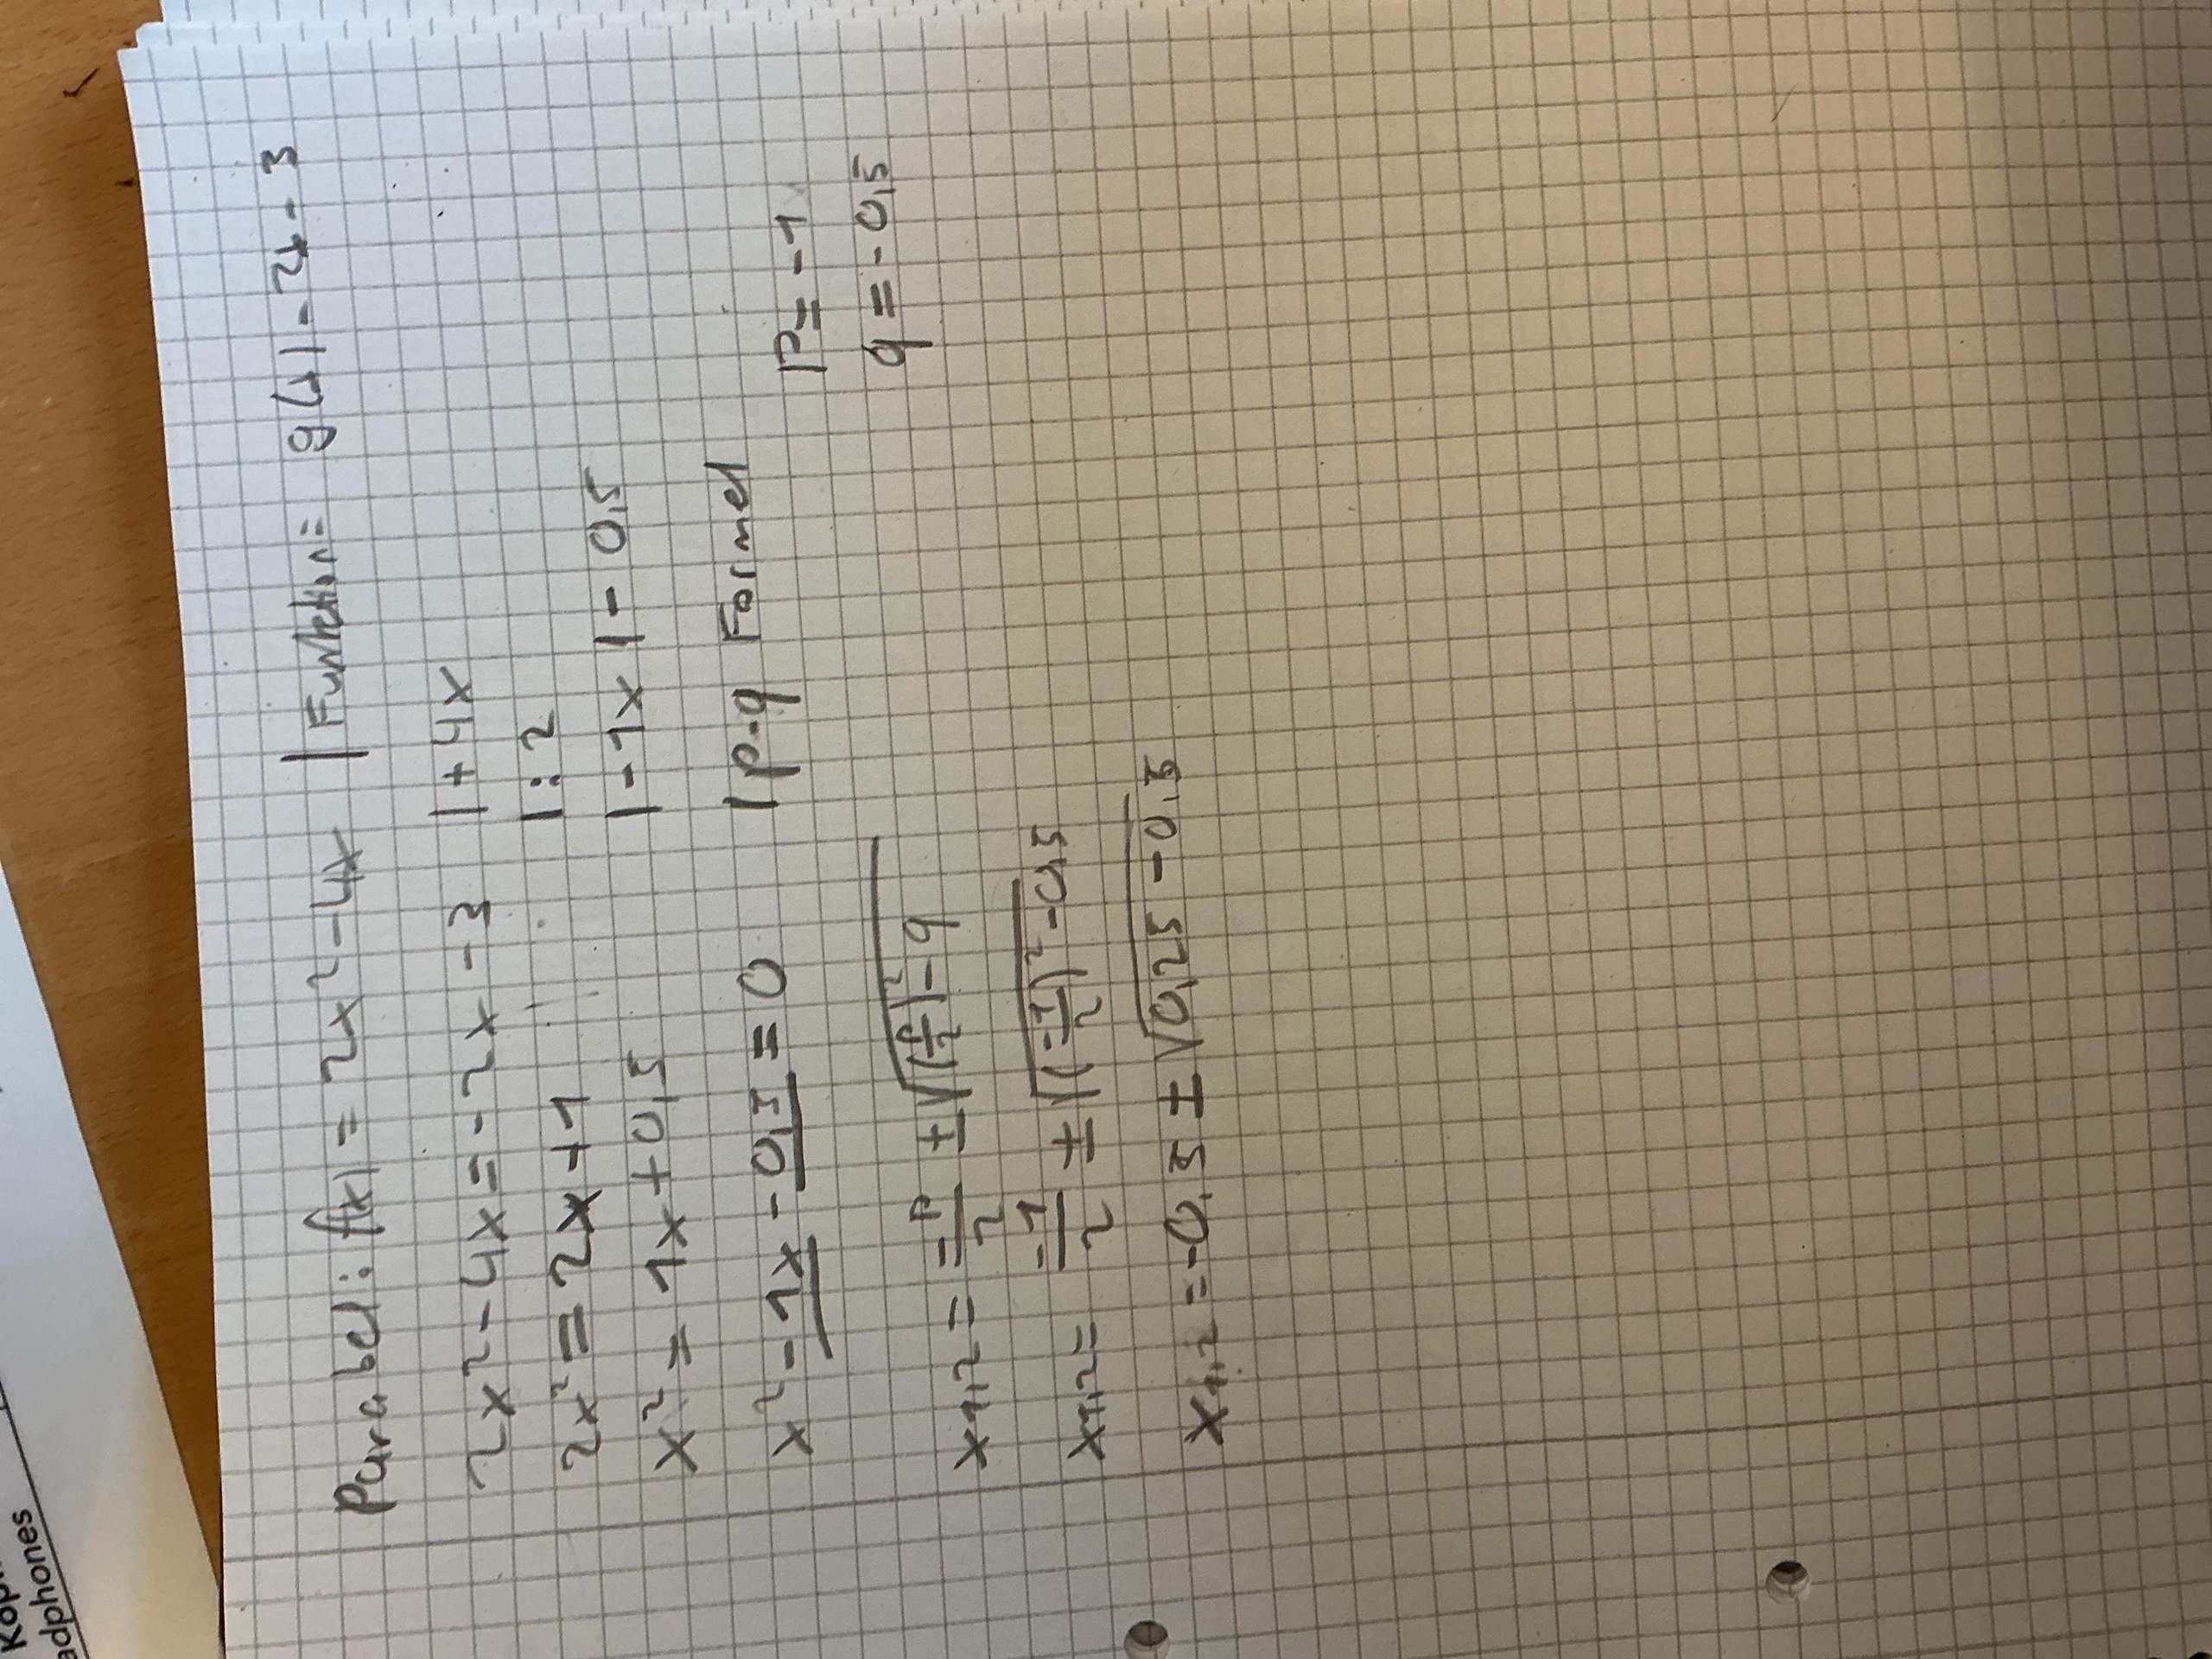 Parabel: f(x) = 2x² - 4x | Funktion: g(x) - 2x - 3
2x² - 4x = -2x - 3 | + 4x
2x² = 2x + 1 | : 2
x² = 1x + 0,5 | - 1x | - 0,5
x² - 1x - 0,5 = 0 | p-q Formel
p = -1
q = -0,5
x1,2 = -p/2 ± √((p/2)² - q
x1,2 = -1/2 ± √((-1/2)² - 0,5
x1,2 = -0,5 ± √0,25 - 0,5
adphones